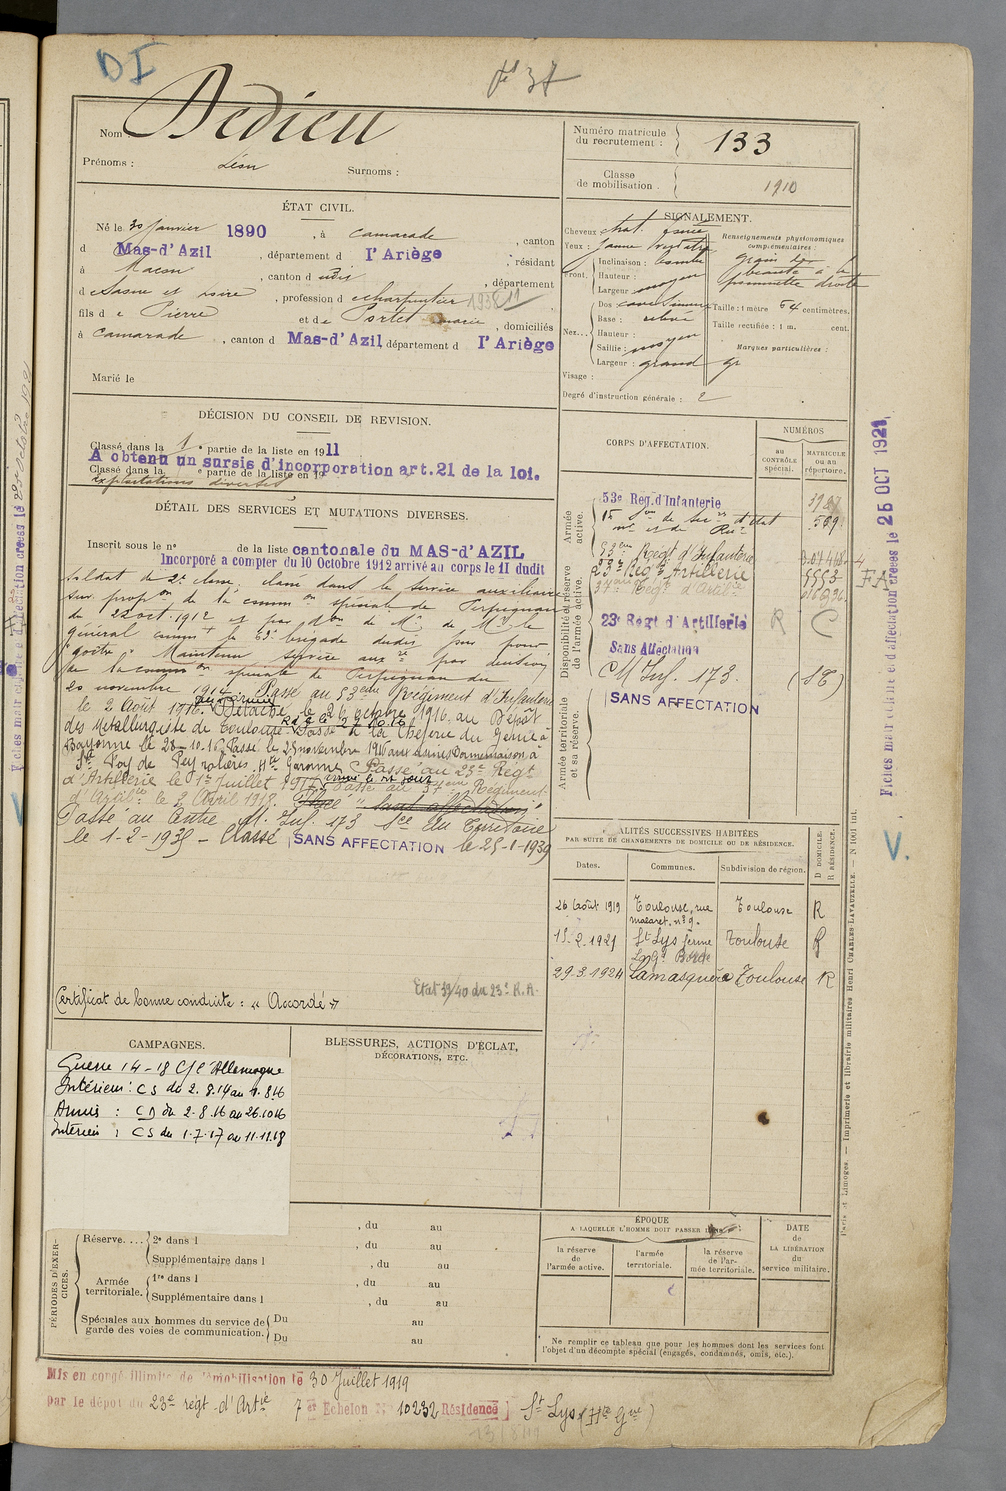 DI
fo 37
Nom : Dedieu
Prénoms : Léon Surnoms :
Numéro matricule du recrutement : 133
Classe de mobilisation . 1910
ÉTAT CIVIL.
Né le 30 Janvier 1890 , à Camarade , canton
d Mas-d'Azil , département d l'Ariège , résidant
à Macon , canton d udit , département
d Saone et Loire , profession d e charpentier
fils d e Pierre et de Portet marie , domiciliés
à Camarade , canton d Mas-d'Azil, département d l'Ariège
Marié le
SIGNALEMENT.
Cheveux chat.
Yeux : jaune verdatre
Front. Inclinaison :
Hauteur :
Largeur : moyen
Nez... Dos
Base : relevée
Hauteur :
Saillie : moyen
Largeur : grand
Visage :
Degré d'instruction générale : 2
Renseignements physionomiques complémentaires :
grain de
beauté à la
pommette droite
Taille : 1 mètre 64 centimètres.
Taille rectifiée : 1 m. cent.
Marques particulières :
DÉCISION DU CONSEIL DE REVISION.
Classé dans la 1 e partie de la liste en 1911
A obtenu un sursis d'incorporation art.21 de la loi.
Classé dans la e partie de la liste en 19
exploitations diverses
DÉTAIL DES SERVICES ET MUTATIONS DIVERSES.
Inscrit sous le n° de la liste cantonale du MAS-d'AZIL
Incorporé a compter du 10 Octobre 1912 arrivé au corps le 11 dudit
Soldat de 2e classe, classé dans le service auxiliaire
sur propon de la common spéciale de Perpignan
du 22 oct. 1912 et par don de Mr de Mr le
général commt la 62e brigade dudit jour pour
"goitre" Maintenu service auxre par décision
de la common spéciale de Perpignan du
20 novembre 1914. Passé au 53eme Régiment d'Infanterie
le 2 Août 1916. Détaché le 26 octobre 1916 au Dépôt
des Métallurgistes de Toulouse. Passé à la Chefferie du Génie à
Bayonne le 28-10-16. Passé le 25 novembre 1916 aux Usines Dormemaison, à
Ste Foy de Peyrolières, Hte Garonne. Passé au 23e Régt
d'Artillerie le 1er Juillet 1917. Passé au 37eme Régiment
d'Artillie le 2 Avril 1918. Placé "sans affectation"
Passé au Centre M. Inf. 173 Sce du Territoire
le 1-2-1935 - Classé SANS AFFECTATION le 25-1-1939
Certificat de bonne conduite : « Accordé »
Etat 39/40 du 23e R.A.
CORPS D'AFFECTATION.
NUMÉROS
au CONTRÔLE spécial.
MATRICULE ou au répertoire.
Armée active.
53e Reg. d'Infanterie
Disponibilité et réserve de l'armée active.
53eme Régt d'Infanterie
23e Régt Artillerie
37eme Régt d'Artie
23e Régt d'Artillerie R C
Sans Affectation
Armée territoriale et sa réserve.
C M Inf. 173.
SANS AFFECTATION
LOCALITÉS SUCCESSIVES HABITÉES
PAR SUITE DE CHANGEMENTS DE DOMICILE OU DE RÉSIDENCE.
Dates. Communes. Subdivision de région. D DOMICILE. R RÉSIDENCE.
26 Août 1919 Toulouse, rue Mazaret, n° 9. Toulouse R
15.2.1921 St Lys ferme Toulouse R
29.3.1924 Lamasquère Toulouse R
CAMPAGNES.
Guerre 14-18 C/e Allemagne
Intérieur : CS du 2.8.14 au 1.8.16
Armées : CD du 2.8.16 au 26.10.16
Intérieur : CS du 1.7.17 au 11.11.18
BLESSURES, ACTIONS D'ÉCLAT, DÉCORATIONS, ETC.
PÉRIODES D'EXERCICES.
Réserve.... 2e dans l , du au
Supplémentaire dans l , du au
Armée territoriale. 1re dans l , du au
Supplémentaire dans l , du au
Spéciales aux hommes du service de garde des voies de communication. Du au
Du au
ÉPOQUE
A LAQUELLE L'HOMME DOIT PASSER DANS
la réserve de l'armée active.
l'armée territoriale.
la réserve de l'armée territoriale.
DATE de LA LIBÉRATION du service militaire.
Ne remplir ce tableau que pour les hommes dont les services font
l'objet d'un décompte spécial (engagés, condamnés, omis, etc.).
Mis en congé illimité de démobilisation le 30 Juillet 1919
par le dépôt du 23e régt d'Artie 7 e Echelon N° 10232 Résidence St Lys (Hte Gne)
Fiches matricule et d'affectation créées le 25 OCT 1921
V.
Paris et Limoges. — Imprimerie et librairie militaires Henri CHARLES-LAVAUZELLE. — N° 1001 int